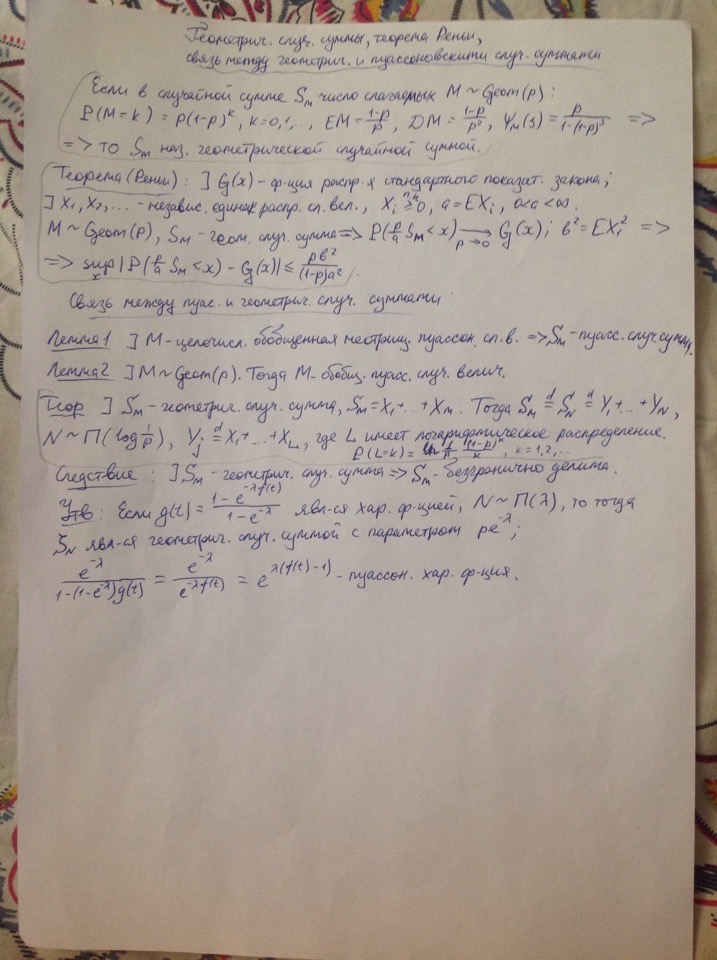 Геометрич. случ. суммы, теорема Реньи,
связь между геометрич. и пуассоновскими случ. суммами
Если в случайной сумме S_M число слагаемых M ~ Geom(p):
P(M=k) = p(1-p)^k, k=0,1,..., EM = \frac{1-p}{p}, DM = \frac{1-p}{p^2}, ψ_M(s) = \frac{p}{1-(1-p)s} =>
=> то S_M наз. геометрической случайной суммой.
Теорема (Реньи): ] G(x) - ф-ция распр-я стандартного показат. закона;
] X_1, X_2, ... - независ. одинак распр. сл. вел., X_i ≥ 0, a = EX_i, 0<a<∞.
M ~ Geom(p), S_M - геом. случ. сумма => P(\frac{p}{a} S_M < x) \xrightarrow[p→0]{} G(x); b^2 = EX_i^2 =>
=> sup_x |P(\frac{p}{a} S_M < x) - G(x)| ≤ \frac{pb^2}{(1-p)a^2}.
Связь между пуас. и геометрич. случ. суммами:
Лемма 1 ] M - целочисл. обобщенная неотриц. пуассон. сл. в. => S_M - пуасс. случ. сумма.
Лемма 2 ] M ~ Geom(p). Тогда M - обобщ. пуасс. случ. велич.
Теор ] S_M - геометрич. случ. сумма, S_M = X_1 + ... + X_M. Тогда S_M \stackrel{d}{=} S_N \stackrel{d}{=} Y_1 + ... + Y_N,
N ~ П(log \frac{1}{p}), Y_j \stackrel{d}{=} X_1 + ... + X_L, где L имеет логарифмическое распределение.
P(L=k) = \frac{(1-p)^k}{k}, k=1,2,...
Следствие: ] S_M - геометрич. случ. сумма => S_M - безгранично делима.
Утв: Если g(t) = \frac{1-e^{-λf(t)}}{1-e^{-λ}} явл-ся хар. ф-цией, N ~ П(λ), то тогда
S_N явл-ся геометрич. случ. суммой с параметром pe^{-λ};
\frac{e^{-λ}}{1-(1-e^{-λ})g(t)} = \frac{e^{-λ}}{e^{-λf(t)}} = e^{λ(f(t)-1)} - пуассон. хар. ф-ция.